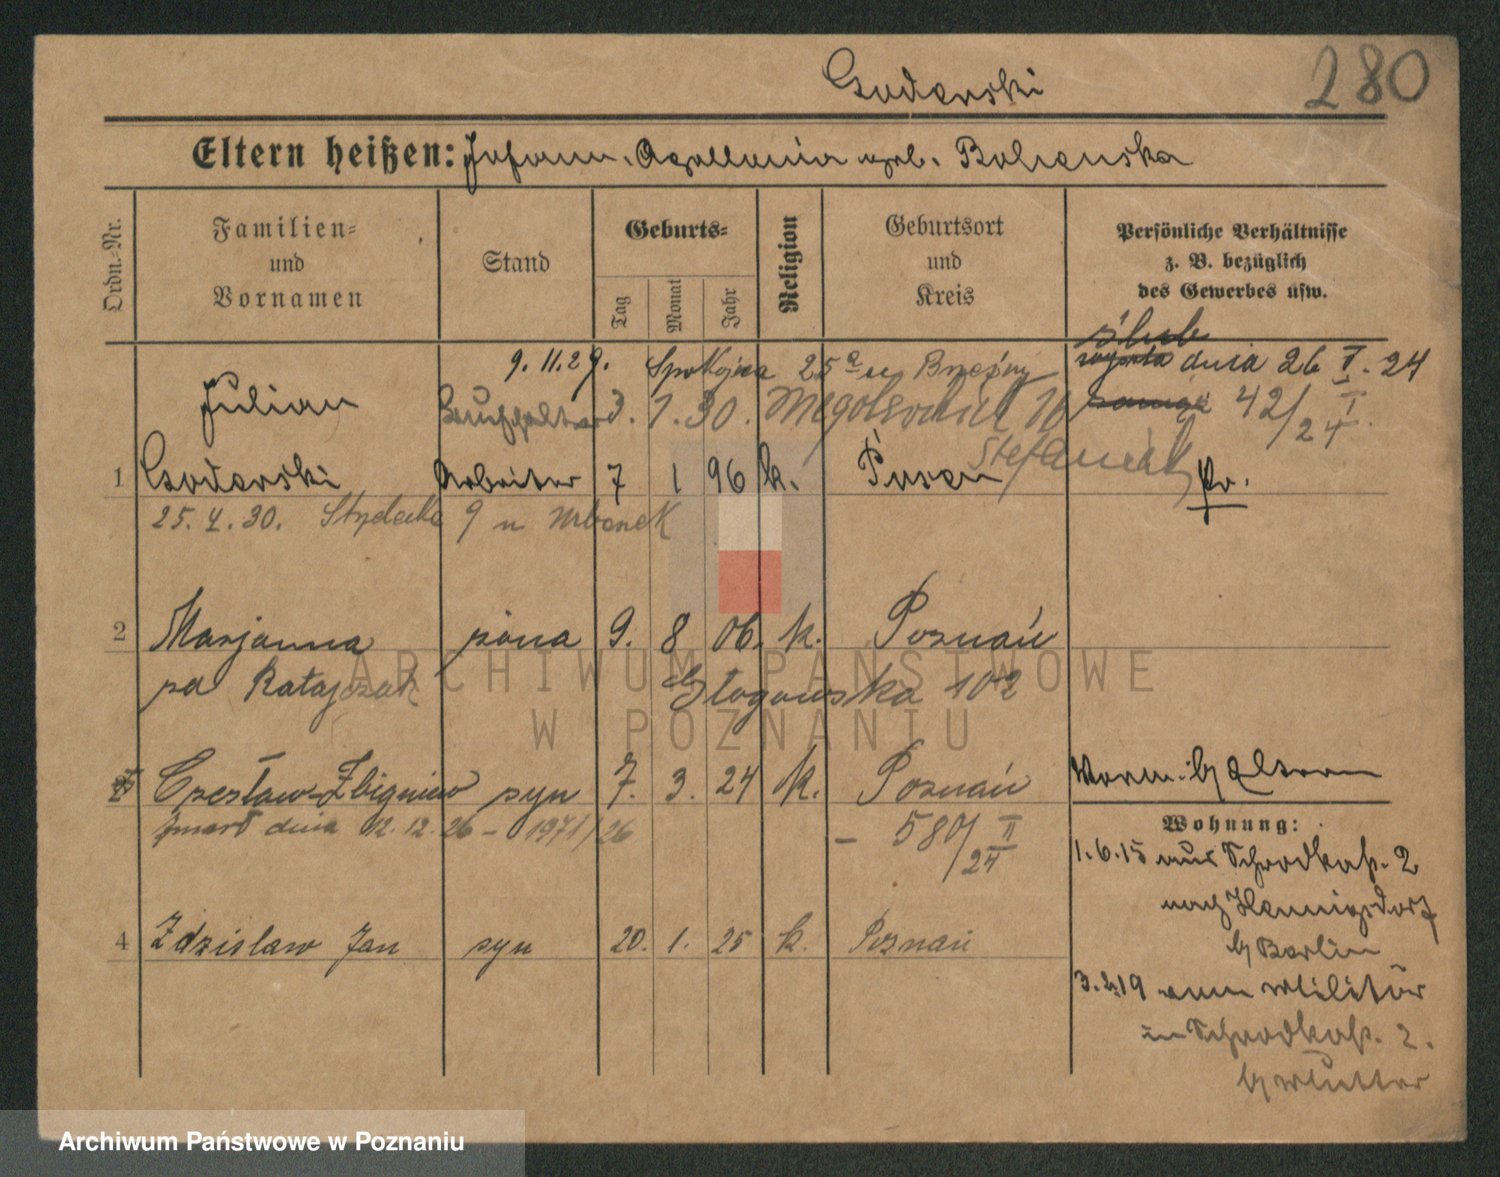 Goderski 280
Eltern heißen: Johann. Apollonia geb. Bolienska
Ordn.-Nr.
Familien- und Vornamen
Stand
Geburts-
Tag Monat Jahr
Religion
Geburtsort und Kreis
Persönliche Verhältnisse
z. B. bezüglich
des Gewerbes usw.
ślub
9. 11. 29. Spokojna 25a u Brzeźny
dnia 26 I. 24
Julian Buchhalter 3. 1. 30. 16 42/24 I.
Stefaniak
1 Goderski Arbeiter 7 1 96 k. Posen Pr.
25. 4. 30. 9 u Urbanek
2 Marjanna żona 9. 8 06. k. Poznań
zd Ratajczak Głogowska 102
Czesław-Zbigniew syn 7. 3. 24 k. Poznań Worm. b/ Eltern
zmarł dnia 12. 12. 26 – 1971/26 – 580/24 II
Wohnung:
1.6.15 aus Schrodkastr. 2
nach Hennigsdorf
b/ Berlin
4 Zdzisław Jan syn 20. 1. 25 k. Poznań
3.2.19 vom Militär
in Schrodkastr. 2.
b/ Mutter
ARCHIWUM PAŃSTWOWE
W POZNANIU
Archiwum Państwowe w Poznaniu